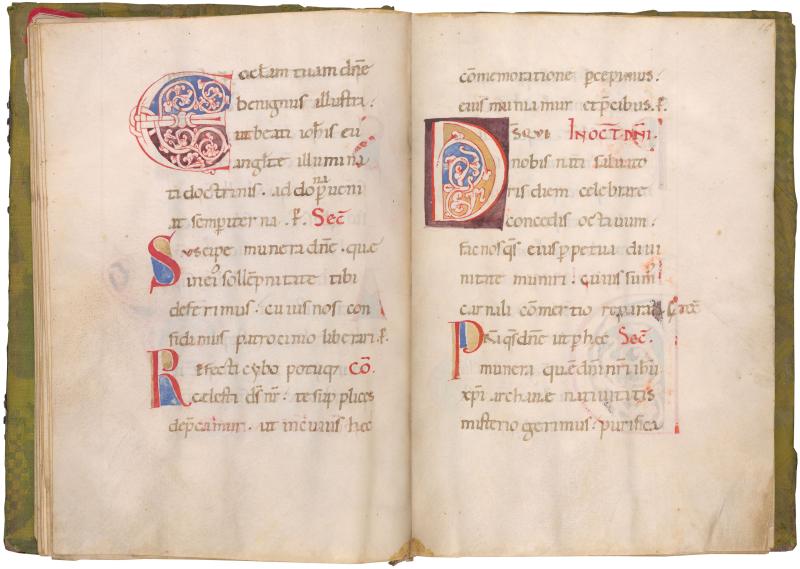 Ecclam tuam dn̄e
benignus illustra.
ut beati ioh̄is eu
anglꝭte illumina
ti doctrinis. ad dona pueni
at sempiterna. P̄. Sec̄
Suscipe munera dn̄e. que
in eius sollēpnitate tibi
deferimus. cuius nos con
fidimus patrocinio liberari. P̄.
Refecti cybo potuq; CŌ.
cælesti ds̄ nr̄. te supplices
dep̄camur. ut in cuius hæc
cōmemoratione p̄cepimus.
eius muniamur et p̄cibus. P̄.
DS QVI IN OCT. DNI.
nobis nati saluato
ris diem celebrare
concedis octauum.
fac nos q̄s eius p̄petua diui
nitate muniri. cuius sum
carnali cōmertio reparati.
Pr̄a q̄s dn̄e ut p̄ hec Sec̄.
munera que dn̄i nr̄i ihū
xp̄i archane natiuitatis
misterio gerimus. purifica